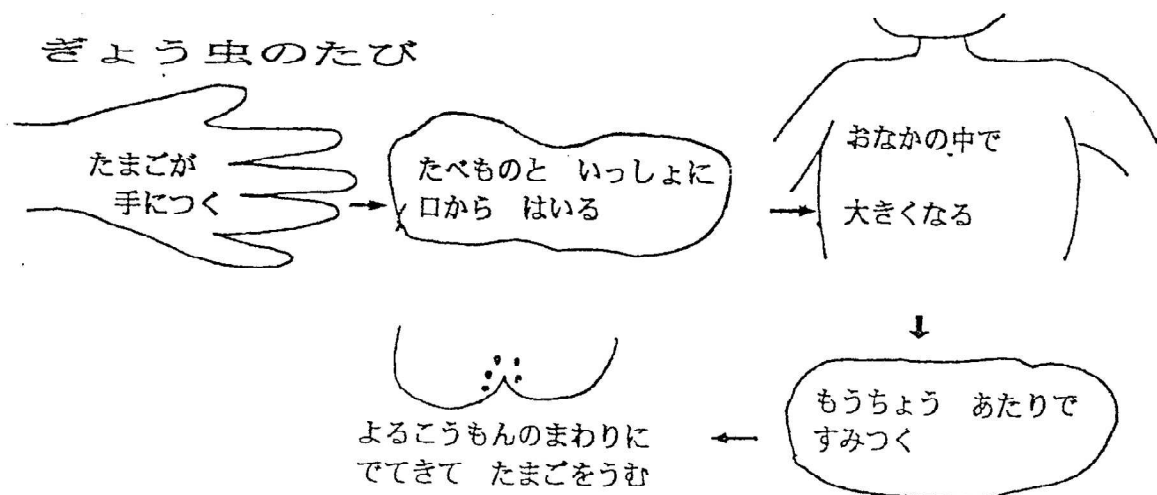 ぎょう虫のたび
たまごが
手につく
たべものと いっしょに
口から はいる
おなかの中で
大きくなる
もうちょう あたりで
すみつく
よるこうもんのまわりに
でてきて たまごをうむ